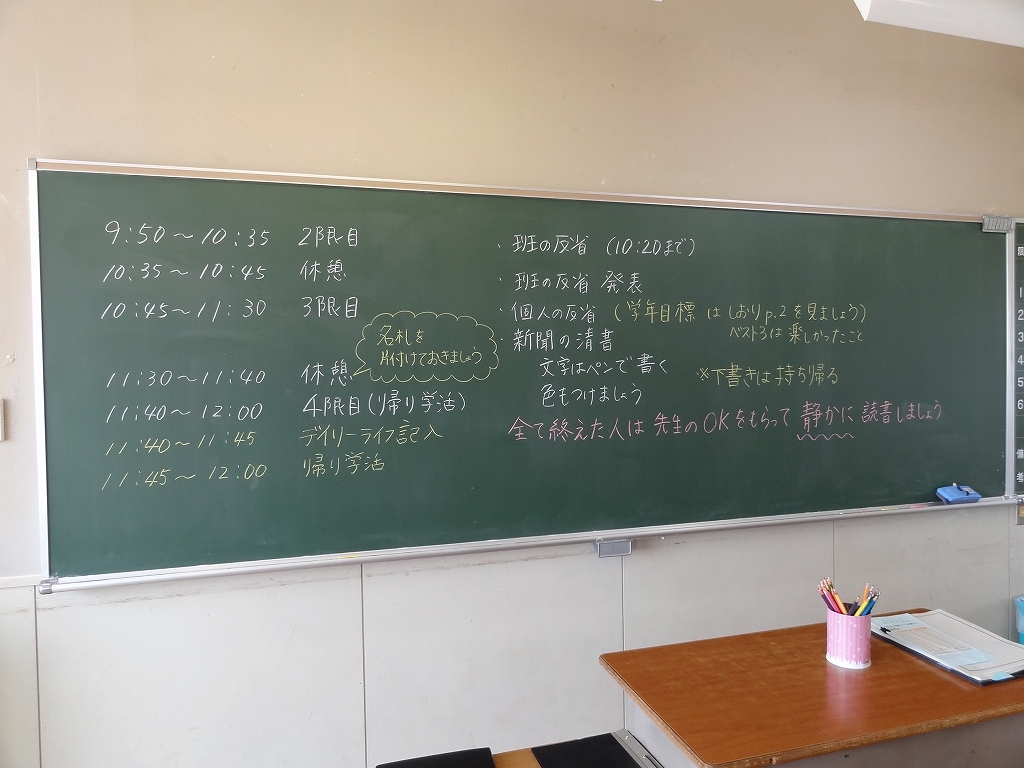 9:50～10:35 2限目
10:35～10:45 休憩
10:45～11:30 3限目
名札を
片付けておきましょう
11:30～11:40 休憩
11:40～12:00 4限目(帰り学活)
11:40～11:45 デイリーライフ記入
11:45～12:00 帰り学活
・班の反省 (10:20まで)
・班の反省 発表
・個人の反省 (学年目標 は しおりp.2を見ましょう)
ベスト3は 楽しかったこと
・新聞の清書
文字はペンで書く ※下書きは持ち帰る
色もつけましょう
全て終えた人は 先生のOKをもらって 静かに 読書しましょう
1
2
3
4
5
6
備
考